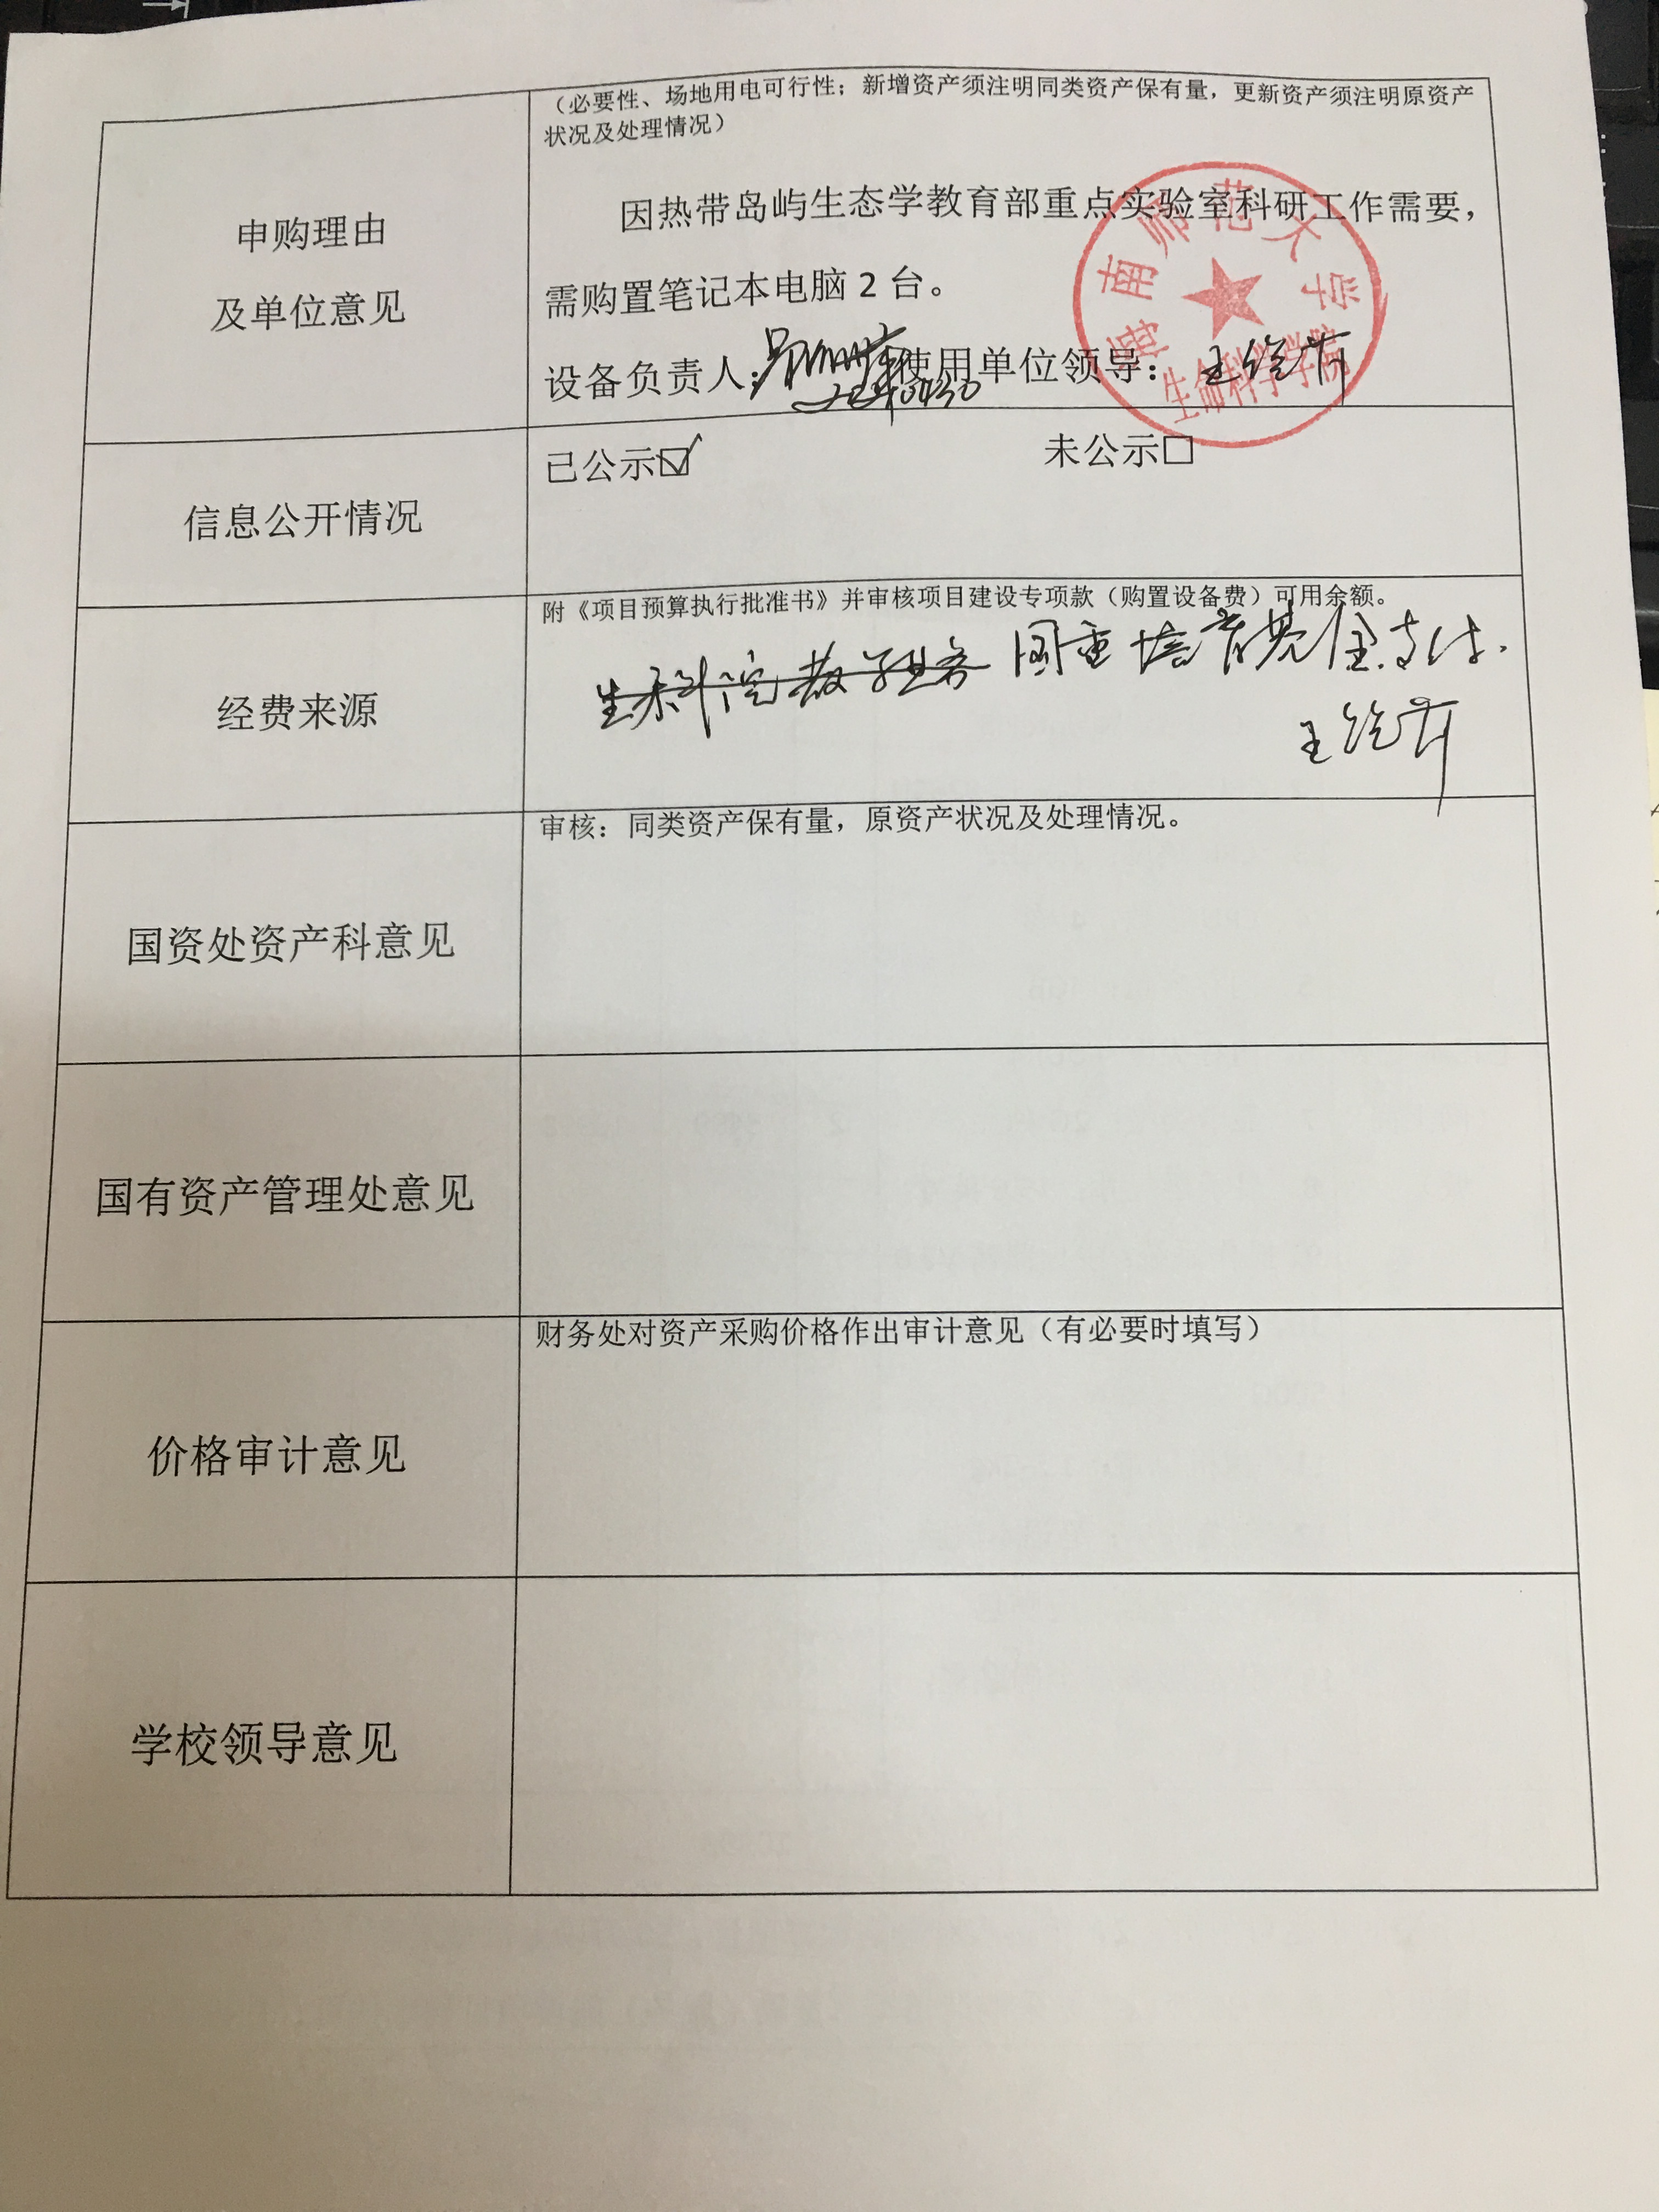 （必要性、场地用电可行性；新增资产须注明同类资产保有量，更新资产须注明原资产
状况及处理情况）
申购理由
及单位意见
因热带岛屿生态学教育部重点实验室科研工作需要，
需购置笔记本电脑 2 台。
设备负责人：
使用单位领导：
海南师范大学
生命科学学院
信息公开情况
已公示☑
未公示□
经费来源
附《项目预算执行批准书》并审核项目建设专项款（购置设备费）可用余额。
生科院教学业务 国重培育基金支付.
国资处资产科意见
审核：同类资产保有量，原资产状况及处理情况。
国有资产管理处意见
价格审计意见
财务处对资产采购价格作出审计意见（有必要时填写）
学校领导意见